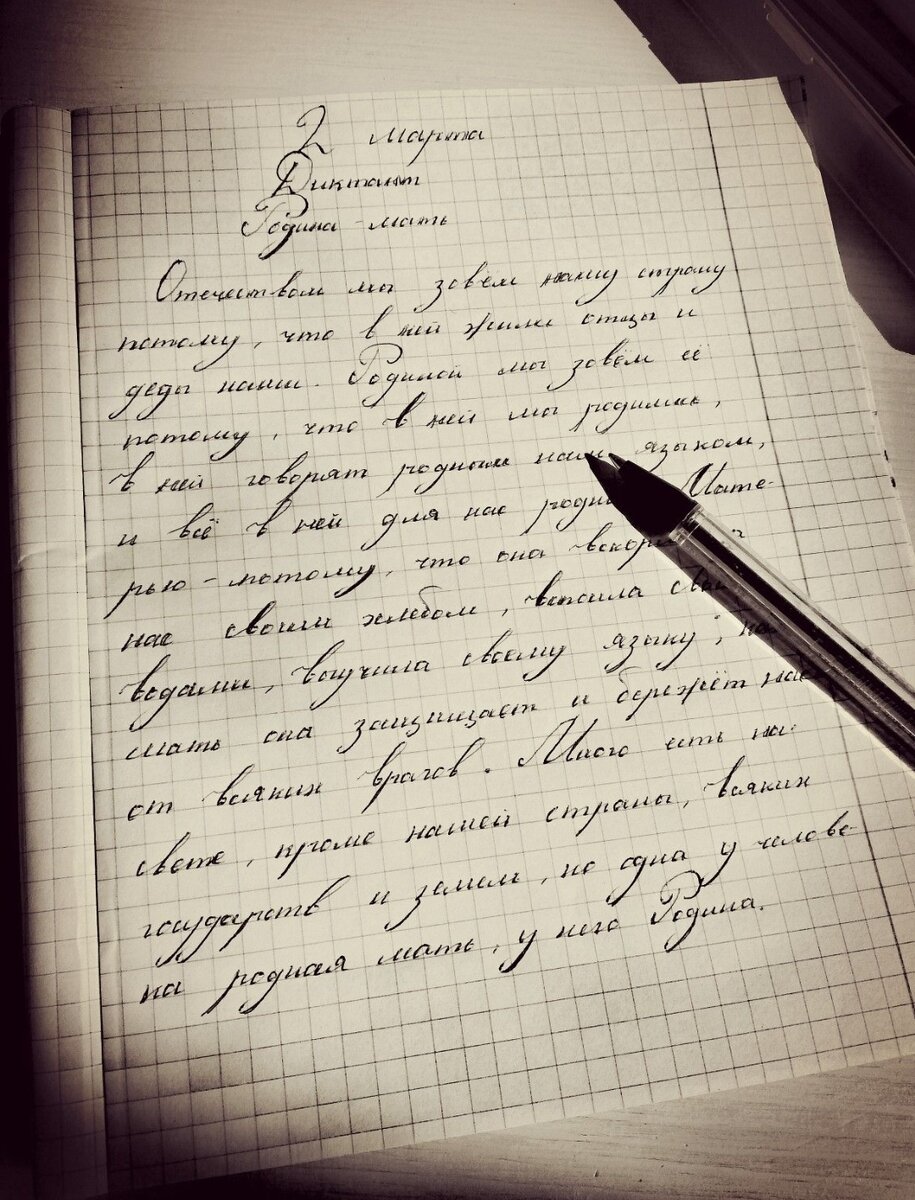 2 марта
Диктант
Родина-мать
Отечеством мы зовём нашу страну
потому, что в ней жили отцы и
деды наши. Родиной мы зовём её
потому, что в ней мы родились,
в ней говорят родным нам языком,
и всё в ней для нас родн Мате-
рью-потому, что она вскорм
нас своим хлебом, вспоила
водами, выучила своему языку,
мать она защищает и бережёт нас
от всяких врагов. Много есть на
свете, кроме нашей страны, всяких
государств и земель, но одна у челове-
ка родная мать, у него Родина.